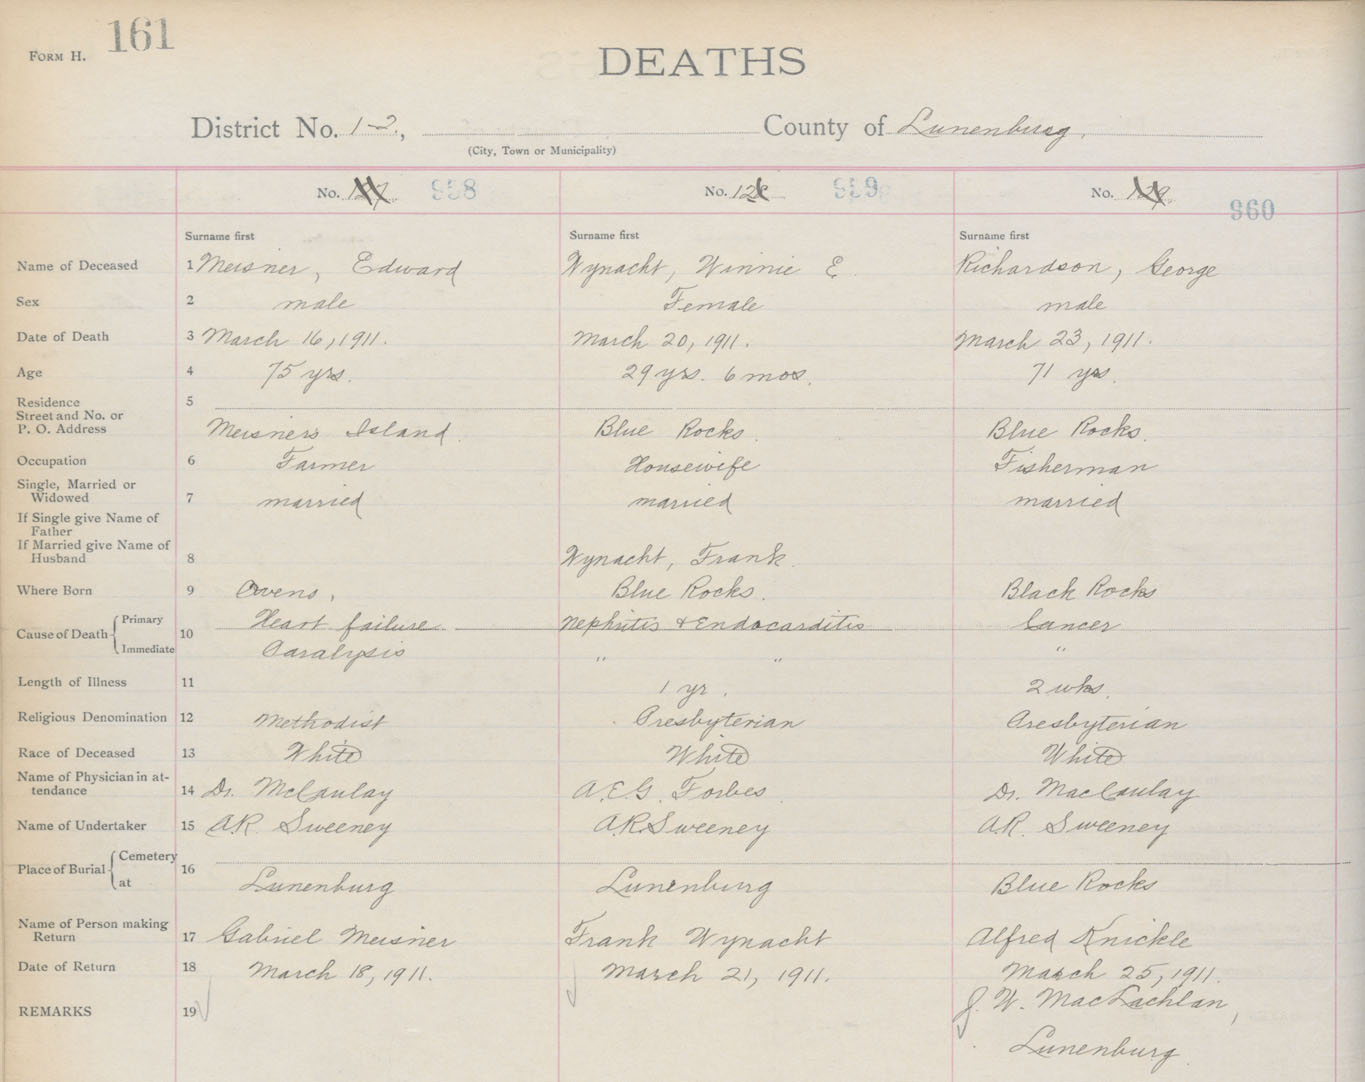 161
FORM H.
DEATHS
District No. 1-2, County of Lunenburg.
(City, Town or Municipality)
No. 127 958 No. 128 959 No. 129 960
Surname first Surname first Surname first
Name of Deceased 1 Meisner, Edward Wynacht, Winnie E. Richardson, George
Sex 2 male Female male
Date of Death 3 March 16, 1911. March 20, 1911. March 23, 1911.
Age 4 75 yrs. 29 yrs. 6 mos. 71 yrs.
Residence 5
Street and No. or
P. O. Address Meisner's Island. Blue Rocks. Blue Rocks.
Occupation 6 Farmer Housewife Fisherman
Single, Married or
Widowed 7 married married married
If Single give Name of
Father
If Married give Name of
Husband 8 Wynacht, Frank.
Where Born 9 Ovens, Blue Rocks. Black Rocks
Cause of Death 10 Primary Heart failure Nephritis & Endocarditis Cancer
Immediate Paralysis " " "
Length of Illness 11 1 yr. 2 wks.
Religious Denomination 12 Methodist Presbyterian Presbyterian
Race of Deceased 13 White White White
Name of Physician in at-
tendance 14 Dr. McCaulay A.E.G. Forbes. Dr. MacCaulay
Name of Undertaker 15 A.R. Sweeney A.R. Sweeney A.R. Sweeney
Place of Burial 16 Cemetery
at Lunenburg Lunenburg Blue Rocks
Name of Person making
Return 17 Gabriel Meisner Frank Wynacht Alfred Knickle
Date of Return 18 March 18, 1911. March 21, 1911. March 25, 1911.
REMARKS 19 J. W. MacLachlan,
Lunenburg.